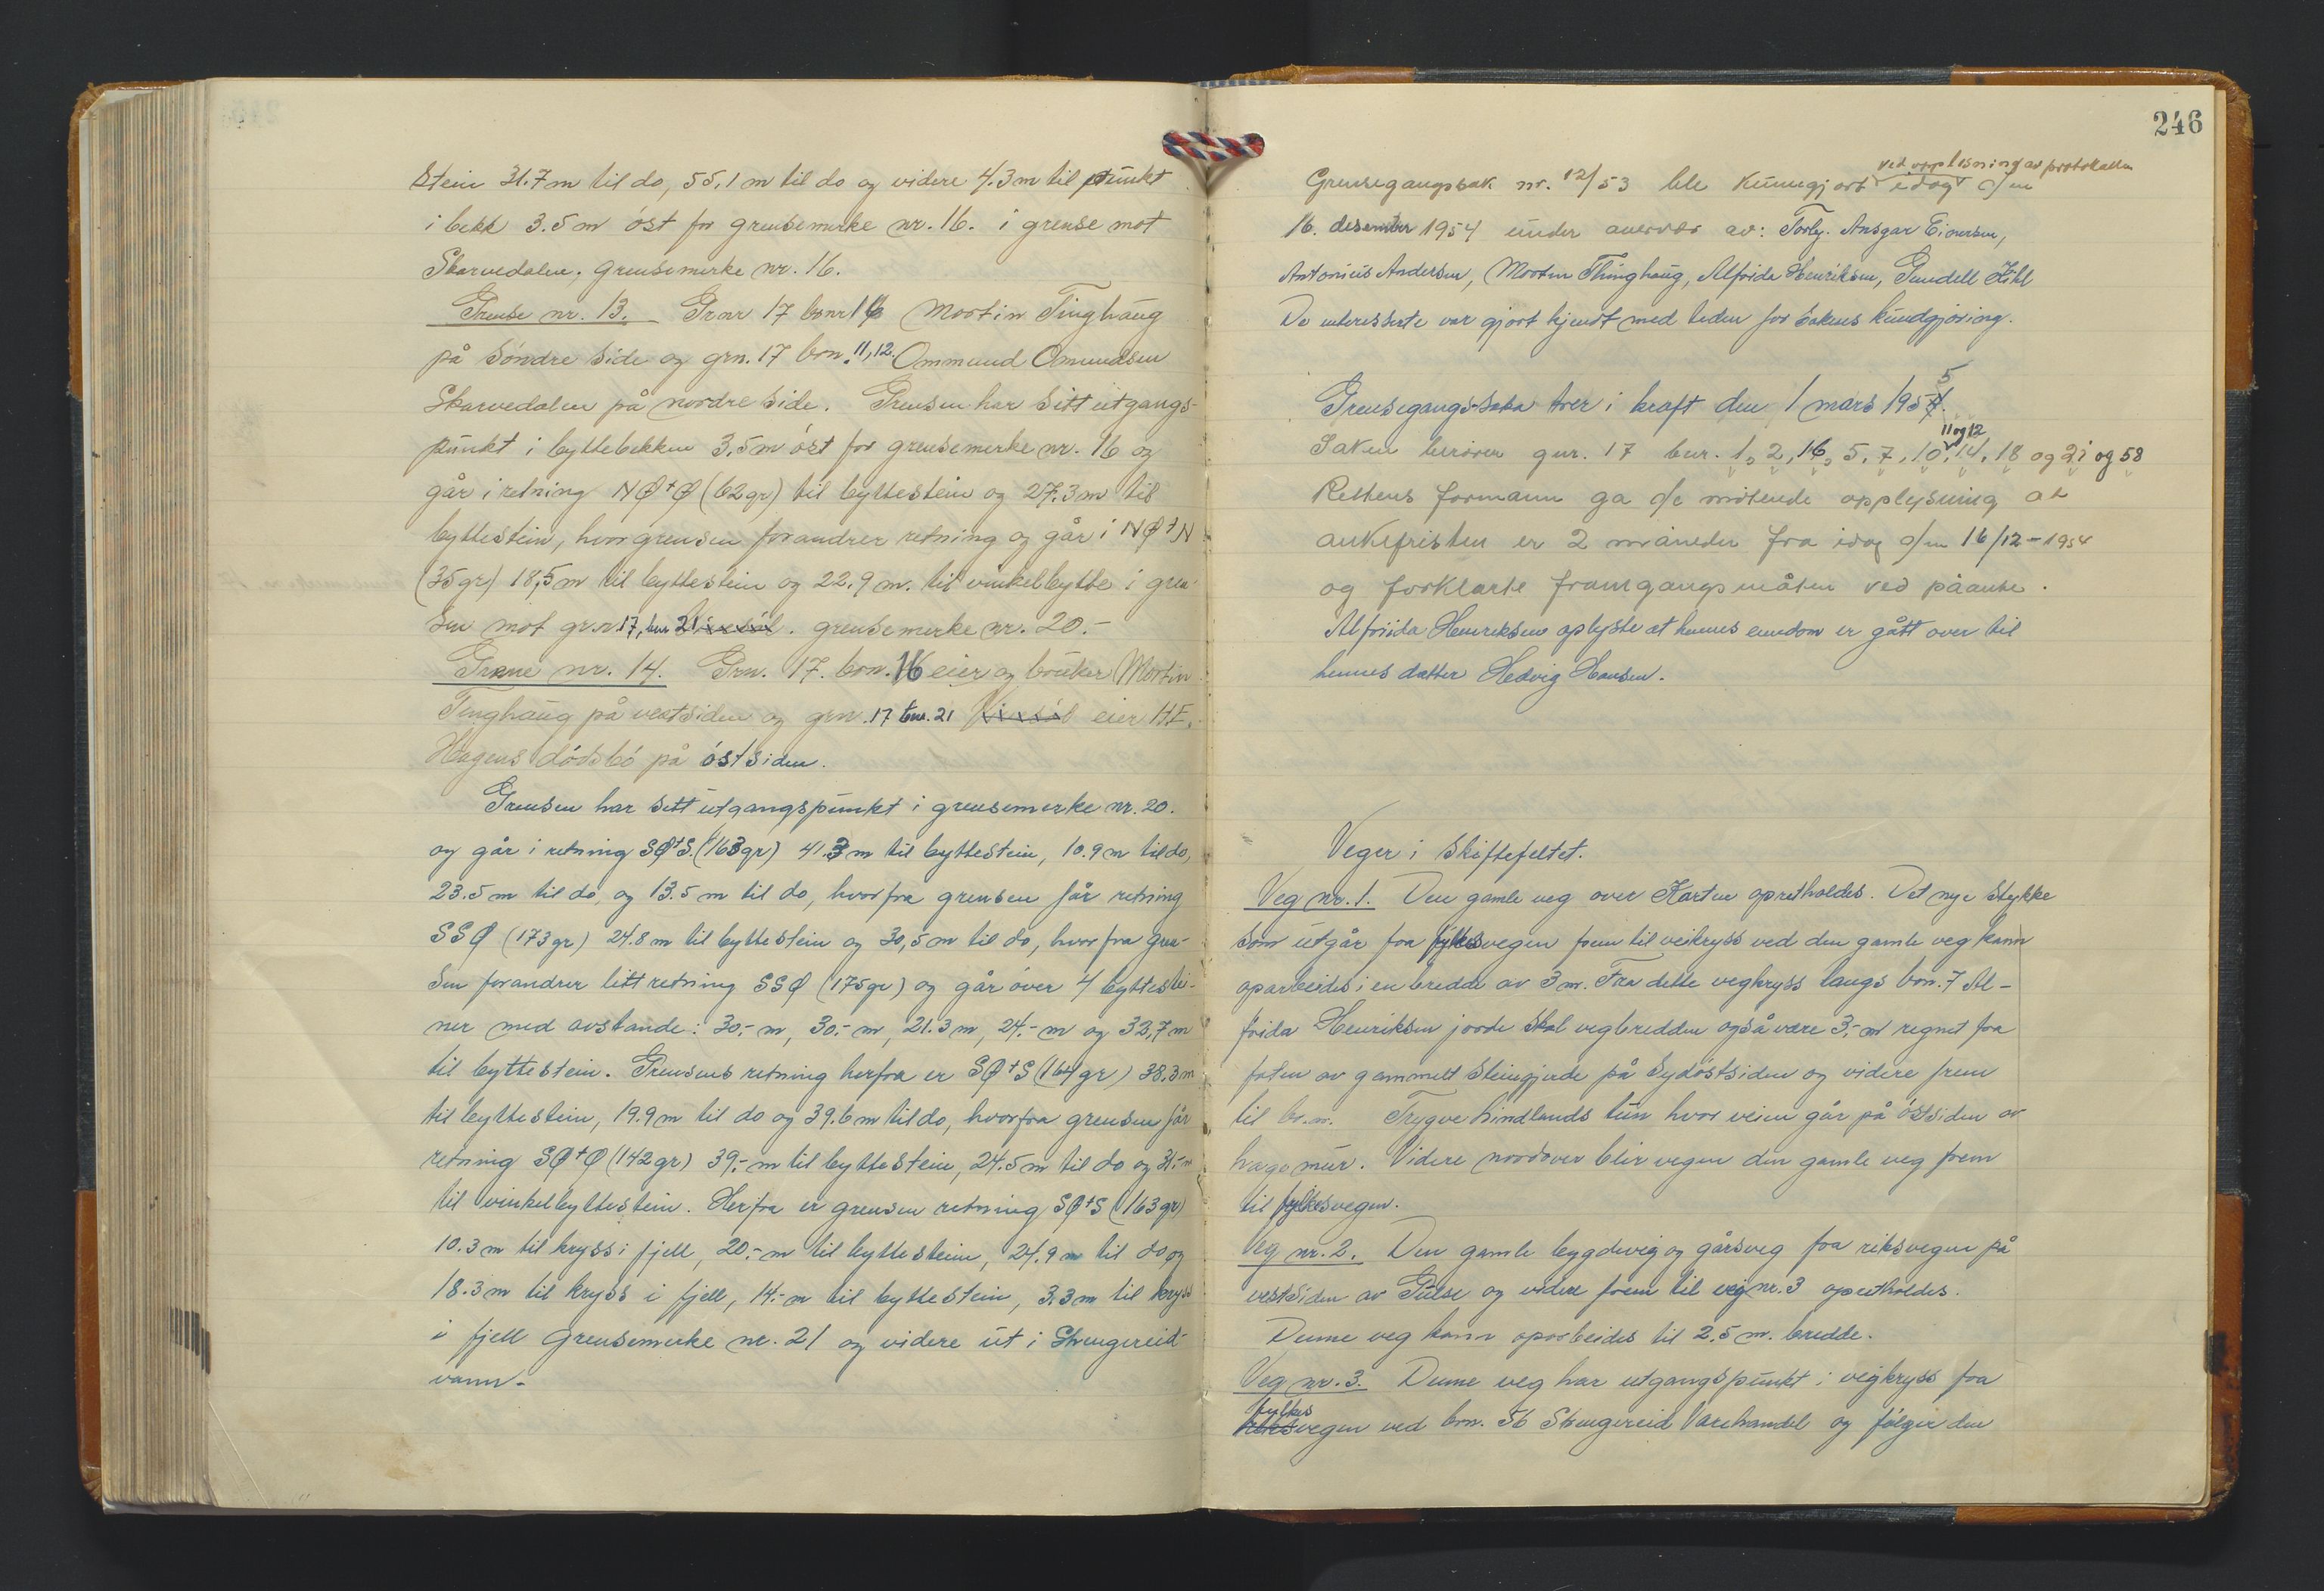 Stein 31.7 m til do, 55,1 m til do og videre 4.3 m til punkt
i bekk 3.5 m øst for grensemerke nr. 16. i grense mot
Skarvedalen, grensemerke nr. 16.
Grense nr. 13. Grnr 17 bnr 16 Martin Tinghaug
på søndre side og grn. 17 bn. 11,12. Ommund Omundsen
Skarvedalen på nordre side. Grensen har sitt utgangs-
punkt i byttebekken 3,5 m øst for grensemerke nr. 16 og
går i retning NØ+Ø (62 gr) til byttestein og 27.3 m til
byttestein, hvor grensen forandrer retning og går i NØ+N
(35 gr) 18,5 m til byttestein og 22.9 m. til vinkelbytte i gren-
sen mot gr.n 17, bnr 21. grensemerke nr. 20.-
Grene nr. 14. Grn. 17. bn. 16 eier og bruker Martin
Tinghaug på vestsiden og grn. 17 bnr. 21 eier H.E.
Hagens dødsbo på østsiden.
Grensen har sitt utgangspunkt i grensemerke nr. 20.
og går i retning SØ+S. (163 gr) 41.3 m til byttestein, 10.9 m til do,
23.5 m til do, og 13.5 m til do, hvorfra grensen får retning
SSØ (173 gr) 24.8 m til byttestein og 30,5 m til do, hvorfra gren-
sen forandrer litt retning SSØ (175 gr) og går over 4 byttestei-
ner med avstande: 30,- m, 30.- m, 21.3 m, 24.- m og 32,7 m
til byttestein. Grensens retning herfra er SØ+S (164 gr) 38.3 m
til byttestein, 19.9 m til do og 39.6 m til do, hvorfra grensen får
retning SØ+Ø (142 gr) 39,- m til byttestein, 24.5 m til do og 31.- m
til vinkelbyttestein. Herfra er grensen retning SØ+S (163 gr)
10.3 m til kryss i fjell, 20.- m til byttestein, 24.9 m til do og
18.3 m til kryss i fjell, 14.- m til byttestein, 3.3 m til kryss
i fjell grensemerke nr. 21 og videre ut i Strengereid
vann.-
246
ved opplesning av protokollen
Grensegangssak nr. 12/53 ble kunngjort idag d/en
16. desember 1954 under nærvær av: Torbj. Ansgar Einersen,
Antonius Andersen, Morten Thinghaug, Alfrida Henriksen, Gundell Kihl
De interesserte var gjort kjendt med tiden for sakens kundgjøring.
5
Grensegangs-saka trer i kraft den 1 mars 1954.
11 og 12
Saken berører gnr. 17 bnr. 1, 2, 16, 5, 7, 10, 14, 18 og 21 og 58
Rettens formann ga de møtende opplysning at
ankefristen er 2 måneder fra idag d/en 16/12-1954
og forklarte framgangsmåten ved påanke.
Alfrida Henriksen oplyste at hennes eiendom er gått over til
hennes datter Hedvig Hansen.
Veger i Skiftefeltet.
Veg nr. 1. Den gamle veg over Karten opretholdes. Det nye stykke
som utgår fra fylkesvegen frem til veikryss ved den gamle veg kann
oparbeides i en bredde av 3 m. Fra dette vegkryss langs bn. 7 Al-
frida Henriksen jorde skal vegbredden også være 3,- m regnet fra
foten av gammelt steingjerde på Sydøstsiden og videre frem
til br.nr. Trygve Lindlands tun hvor veien går på østsiden av
hagemur. Videre nordover blir vegen den gamle veg frem
til fylkesvegen.
Veg nr. 2. Den gamle bygdeveg og gårsveg fra riksvegen på
vestsiden av Pulse og videre frem til veg nr. 3 opretholdes.
Denne veg kann oparbeides til 2,5 m. bredde.
Veg nr. 3. Denne veg har utgangspunkt i vegkryss fra
fylkes
riksvegen ved bn. 56 Strengereid Varehandel og følger den